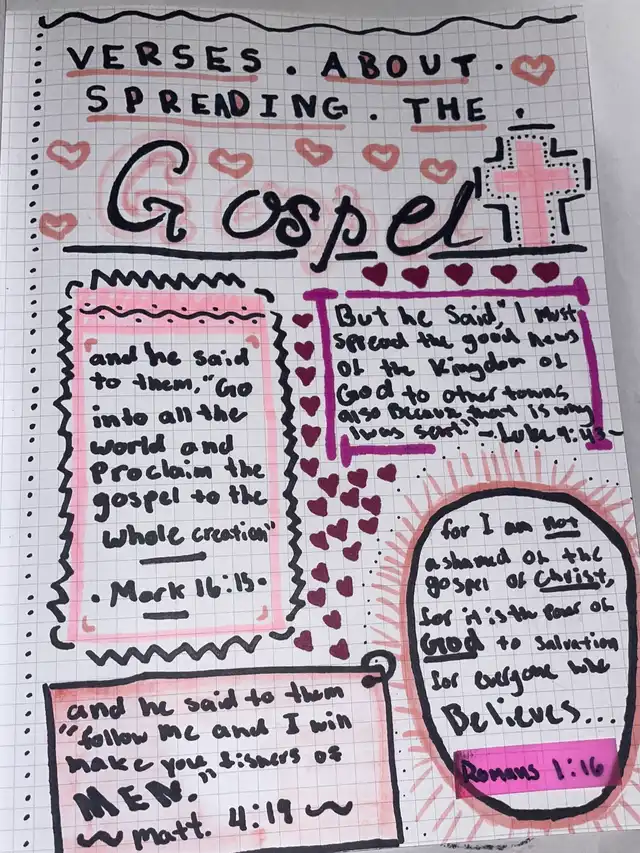 VERSES . ABOUT .
SPREADING . THE .
Gospel
and he said
to them, "Go
into all the
world and
proclaim the
gospel to the
whole creation"
. Mark 16:15.
But he said, "I must
spread the good news
of the Kingdom of
God to other towns
also because that is why
I was sent." ~ Luke 4:43 ~
for I am not
ashamed of the
gospel of Christ,
for it is the power of
God to salvation
for everyone who
Believes...
Romans 1:16
and he said to them
"follow me and I will
make you fishers of
MEN."
~ Matt. 4:19 ~